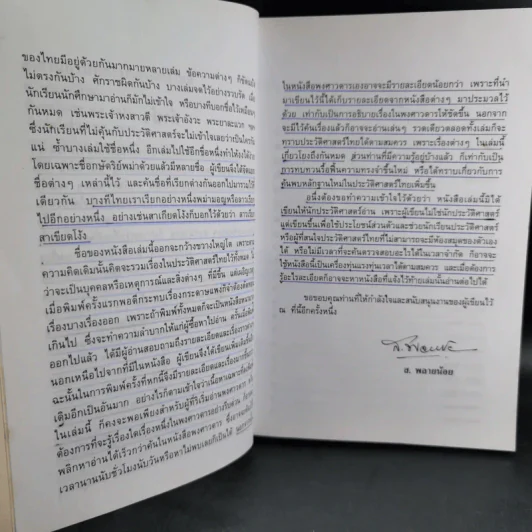 ของไทยมีอยู่ด้วยกันมากมายหลายเล่ม ข้อความต่างๆ ก็ขัดแย้ง
ไม่ตรงกันบ้าง ศักราชผิดกันบ้าง บางเล่มจดไว้อย่างรวบรัด เมื่อ
นักเรียนนักศึกษามาอ่านก็มักไม่เข้าใจ หรือบางทีบอกชื่อไว้เหมือนๆ
กันหมด เช่นพระเจ้าหงสาวดี พระเจ้าอังวะ พระยาละแวก ฯลฯ
ซึ่งนักเรียนที่ไม่คุ้นกับประวัติศาสตร์จะไม่เข้าใจเลยว่าเป็นใคร
แน่ ซ้ำบางเล่มใช้ชื่อหนึ่ง อีกเล่มไปใช้อีกชื่อหนึ่งทำให้งง
โดยเฉพาะชื่อกษัตริย์พม่าด้วยแล้วมีหลายชื่อ ผู้เขียนจึงได้
ชื่อต่างๆ เหล่านี้ไว้ และค้นชื่อที่เรียกต่างกันออกไปมารวมไว้
เดียวกัน บางทีไทยเราเรียกอย่างหนึ่งพม่ามอญหรือลาวเรียก
ไปอีกอย่างหนึ่ง อย่างเช่นสาเกียดโง้งก็บอกไว้ด้วยว่า
สาเขียดโง้ง
ชื่อของหนังสือเล่มนี้ออกจะกว้างขวางใหญ่โต เพราะตาม
ความคิดเดิมนั้นคิดจะรวมเรื่องในประวัติศาสตร์ไทยไว้ทั้งหมด ไม่
ว่าจะเป็นบุคคลหรือเหตุการณ์และสิ่งต่างๆ ที่มีชื่อ
เมื่อพิมพ์ครั้งแรกพอดีกระทบเรื่องกระดาษแพงก็จำต้องตัด
เรื่องบางเรื่องออก เพราะถ้าพิมพ์ทั้งหมดก็จะเป็นหนังสือหนา
เกินไป ซึ่งจะทำความลำบากให้แก่ผู้ซื้อหาไปอ่าน ครั้นเมื่อพิมพ์
ออกไปแล้ว ได้มีผู้อ่านสอบถามถึงรายละเอียดและเรื่องราว
นอกเหนือไปจากที่มีในหนังสือ ผู้เขียนจึงได้เขียนเพิ่มเติม
ฉะนั้นในการพิมพ์ครั้งที่หกนี้จึงมีรายละเอียดและเรื่อง
เติมอีกเป็นอันมาก อย่างไรก็ตามเข้าใจว่าเนื้อหาเฉพาะ
ในเล่มนี้ ก็คงจะพอเพียงสำหรับผู้ที่เริ่มอ่านพงศาวดาร
ต้องการที่จะรู้เรื่องใดเรื่องหนึ่งในพงศาวดารอย่างรีบด่วน ก็อาจ
พลิกหาอ่านได้เร็วกว่าค้นในหนังสือพงศาวดาร ซึ่งอาจจะ
เวลานานนับชั่วโมงนับวันหรือหาไม่พบเลยก็เป็นได้
ในหนังสือพงศาวดารเองอาจจะมีรายละเอียดน้อยกว่า เพราะที่นำ
มาเขียนไว้นี้ได้เก็บรายละเอียดจากหนังสือต่างๆ มาประมวลไว้
ด้วย เท่ากับเป็นการอธิบายเรื่องในพงศาวดารให้ชัดขึ้น นอกจาก
จะมีไว้ค้นเรื่องแล้วก็อาจจะอ่านเล่นๆ รวดเดียวตลอดทั้งเล่มก็จะ
ทราบประวัติศาสตร์ไทยได้ตามสมควร เพราะเรื่องต่างๆ ในเล่มนี้
เกี่ยวโยงถึงกันหมด ส่วนท่านที่มีความรู้อยู่บ้างแล้ว ก็เท่ากับเป็น
การทบทวนรื้อฟื้นความทรงจำขึ้นใหม่ หรือได้ทราบเกี่ยวกับการ
ขุดพบหลักฐานใหม่ในประวัติศาสตร์ไทยเพิ่มขึ้น
อนึ่งต้องขอทำความเข้าใจไว้ด้วยว่า หนังสือเล่มนี้มิได้
เขียนให้นักประวัติศาสตร์อ่าน เพราะผู้เขียนไม่ใช่นักประวัติศาสตร์
แต่เขียนขึ้นเพื่อใช้ประโยชน์ส่วนตัวและช่วยนักเรียนประวัติศาสตร์
หรือผู้ที่สนใจประวัติศาสตร์ไทยที่ไม่สามารถจะมีห้องสมุดของตัวเอง
ได้ หรือไม่มีเวลาที่จะค้นตรวจสอบอะไรได้ในเวลาจำกัด ก็อาจจะ
ใช้หนังสือนี้เป็นเครื่องทุ่นแรงทุ่นเวลาได้ตามสมควร และเมื่อต้องการ
รู้อะไรละเอียดก็อาจจะหาหนังสือที่แจ้งไว้ท้ายเล่มนั้นอ่านต่อไปได้
ขอขอบคุณท่านที่ให้กำลังใจและสนับสนุนงานของผู้เขียนไว้
ณ ที่นี้อีกครั้งหนึ่ง
ส. พลายน้อย